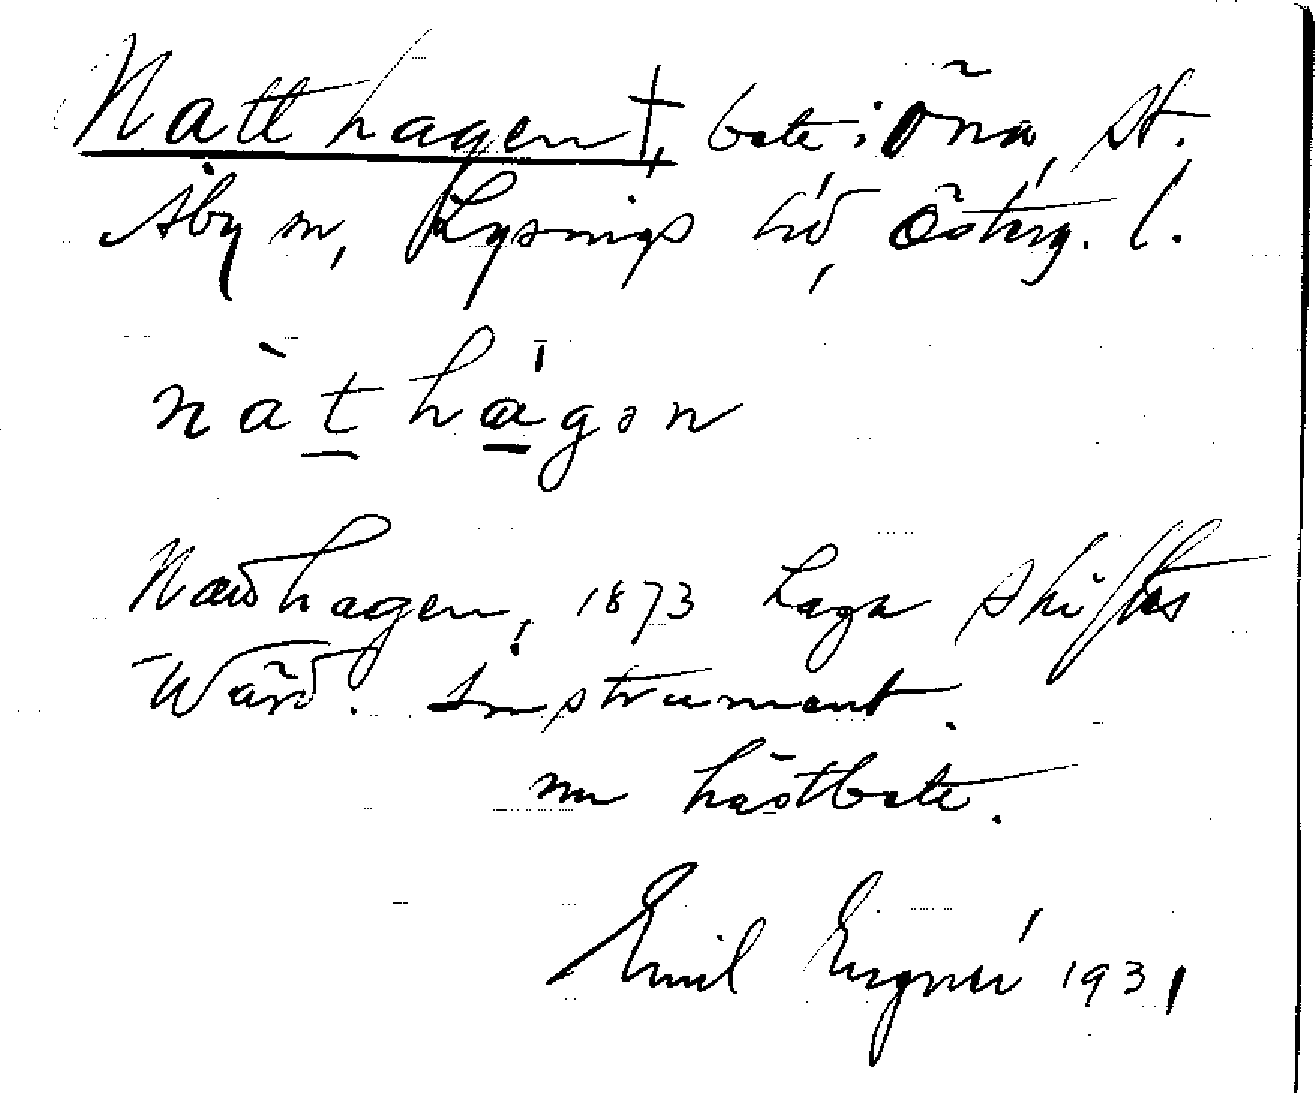 Natthagen †, bete i Öna, St.
Åby sn, Lysings hd, Österg. l.
nàt hágən
Nadhagen, 1873 Laga skiftes
Värd. Instrument.
nu hästbete.
Emil 1931